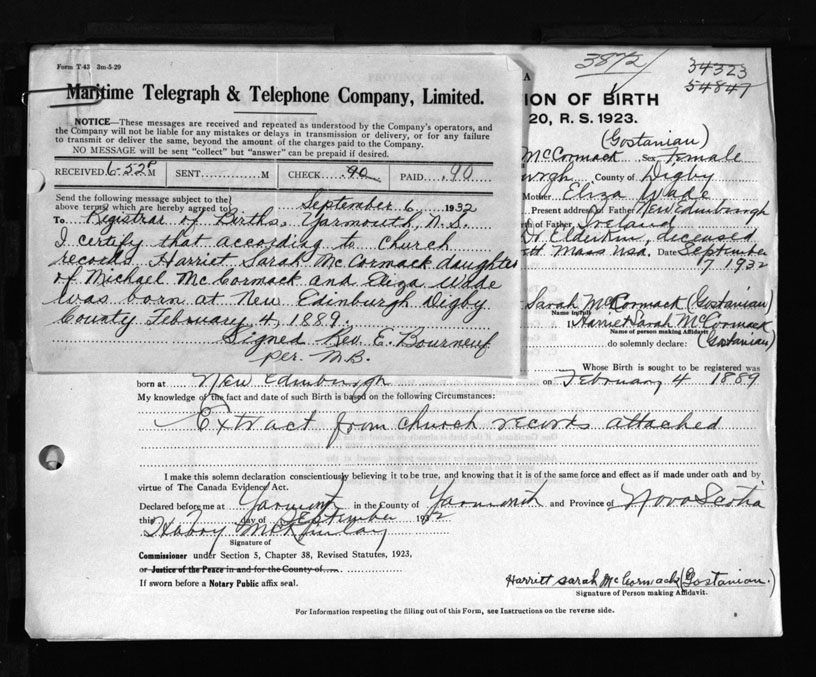 Form T-43 3m-5-29
Maritime Telegraph & Telephone Company, Limited.
NOTICE—These messages are received and repeated as understood by the Company's operators, and
the Company will not be liable for any mistakes or delays in transmission or delivery, or for any failure
to transmit or deliver the same, beyond the amount of the charges paid to the Company.
NO MESSAGE will be sent "collect" but "answer" can be prepaid if desired.
RECEIVED 6-52P M SENT M CHECK 90 PAID .90
Send the following message subject to the
above terms which are hereby agreed to September 6 1932
To Registrar of Births, Yarmouth, N.S.
I certify that according to Church
records Harriet Sarah McCormack daughter
of Michael McCormack and Eliza Wade
was born at New Edinburgh Digby
County February 4, 1889.
Signed Rev E. Bourneuf
per. M.B.
3872
34323
54847
ION OF BIRTH
20, R. S. 1923.
(Gostanian)
McCormack Sex Female
County of Digby
Mother Eliza Wade
Present address of Father New Edinburgh
of Father Ireland
Dr Elderkin, deceased
Mass USA, Date September
7 1932
Sarah McCormack (Gostanian)
Name in full
I, Harriet Sarah McCormack
Name of person making Affidavit
do solemnly declare: (Gostanian)
Whose Birth is sought to be registered was
born at New Edinburgh on February 4 1889
My knowledge of the fact and date of such Birth is based on the following Circumstances:
Extract from church records attached
I make this solemn declaration conscientiously believing it to be true, and knowing that it is of the same force and effect as if made under oath and by
virtue of The Canada Evidence Act.
Declared before me at Yarmouth in the County of Yarmouth and Province of Nova Scotia
this day of September 1932
Harry McKinlay
Signature of
Commissioner under Section 5, Chapter 38, Revised Statutes, 1923,
or Justice of the Peace in and for the County of
If sworn before a Notary Public affix seal.
Harriett Sarah McCormack (Gostanian.)
Signature of Person making Affidavit.
For Information respecting the filling out of this Form, see Instructions on the reverse side.